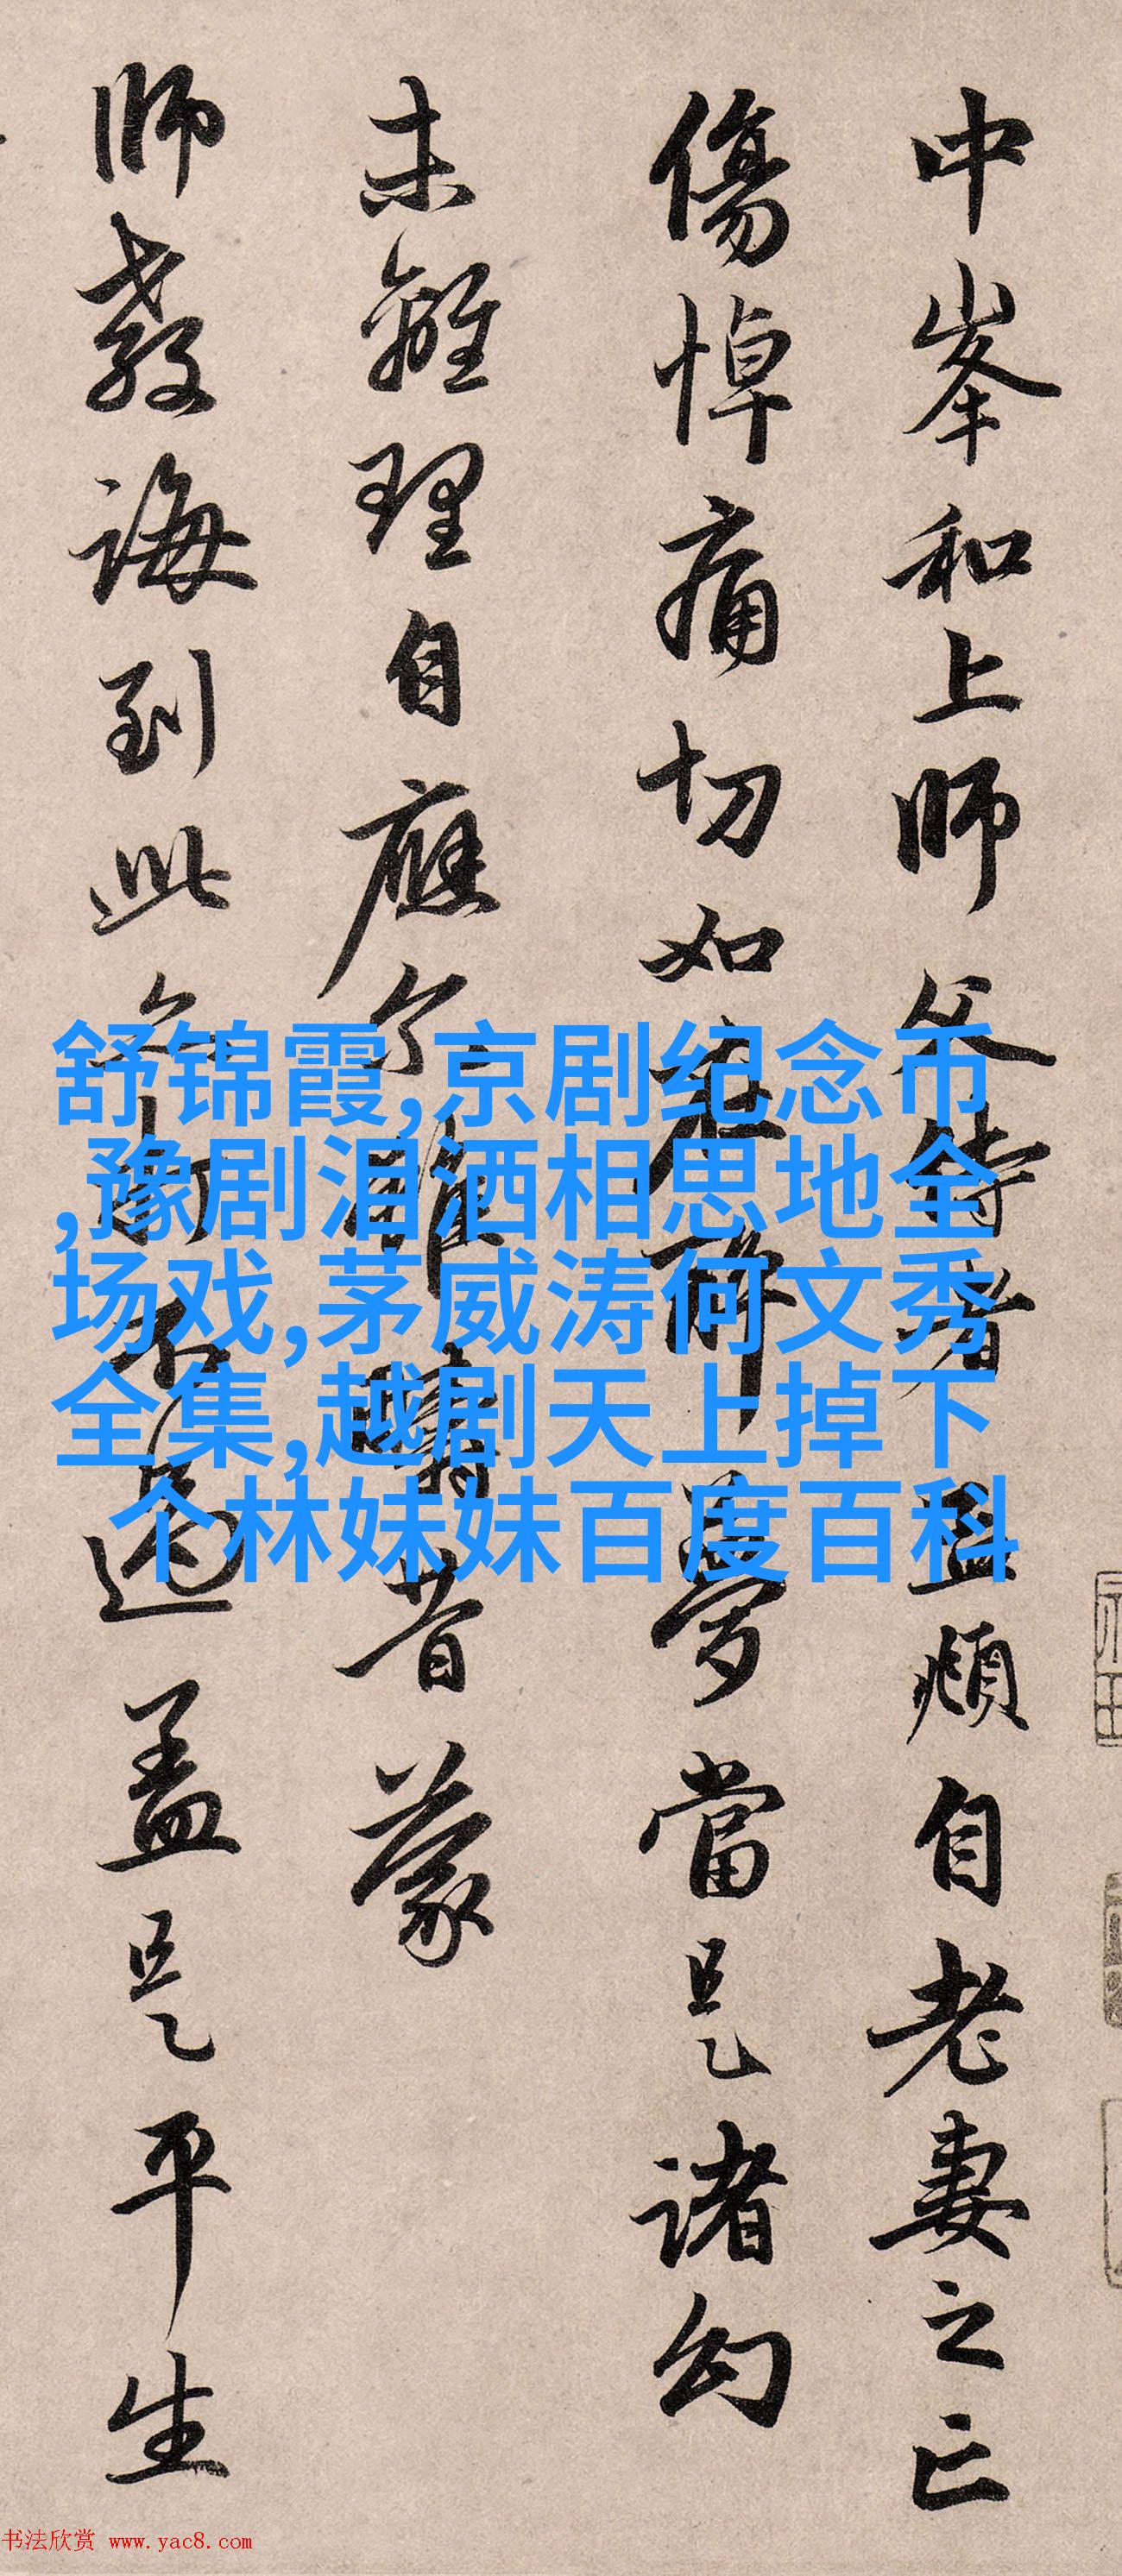 中峯和上師父侍者 孟頫自老妻之亡
傷悼痛切如在醉夢當是諸幻
未離理自應尔雖疇昔蒙
師教誨到此亦打不過蓋是平生
舒锦霞,京剧纪念币
,豫剧泪洒相思地全
场戏,茅威涛何文秀
全集,越剧天上掉下
个林妹妹百度百科
书法欣赏 www.yac8.com